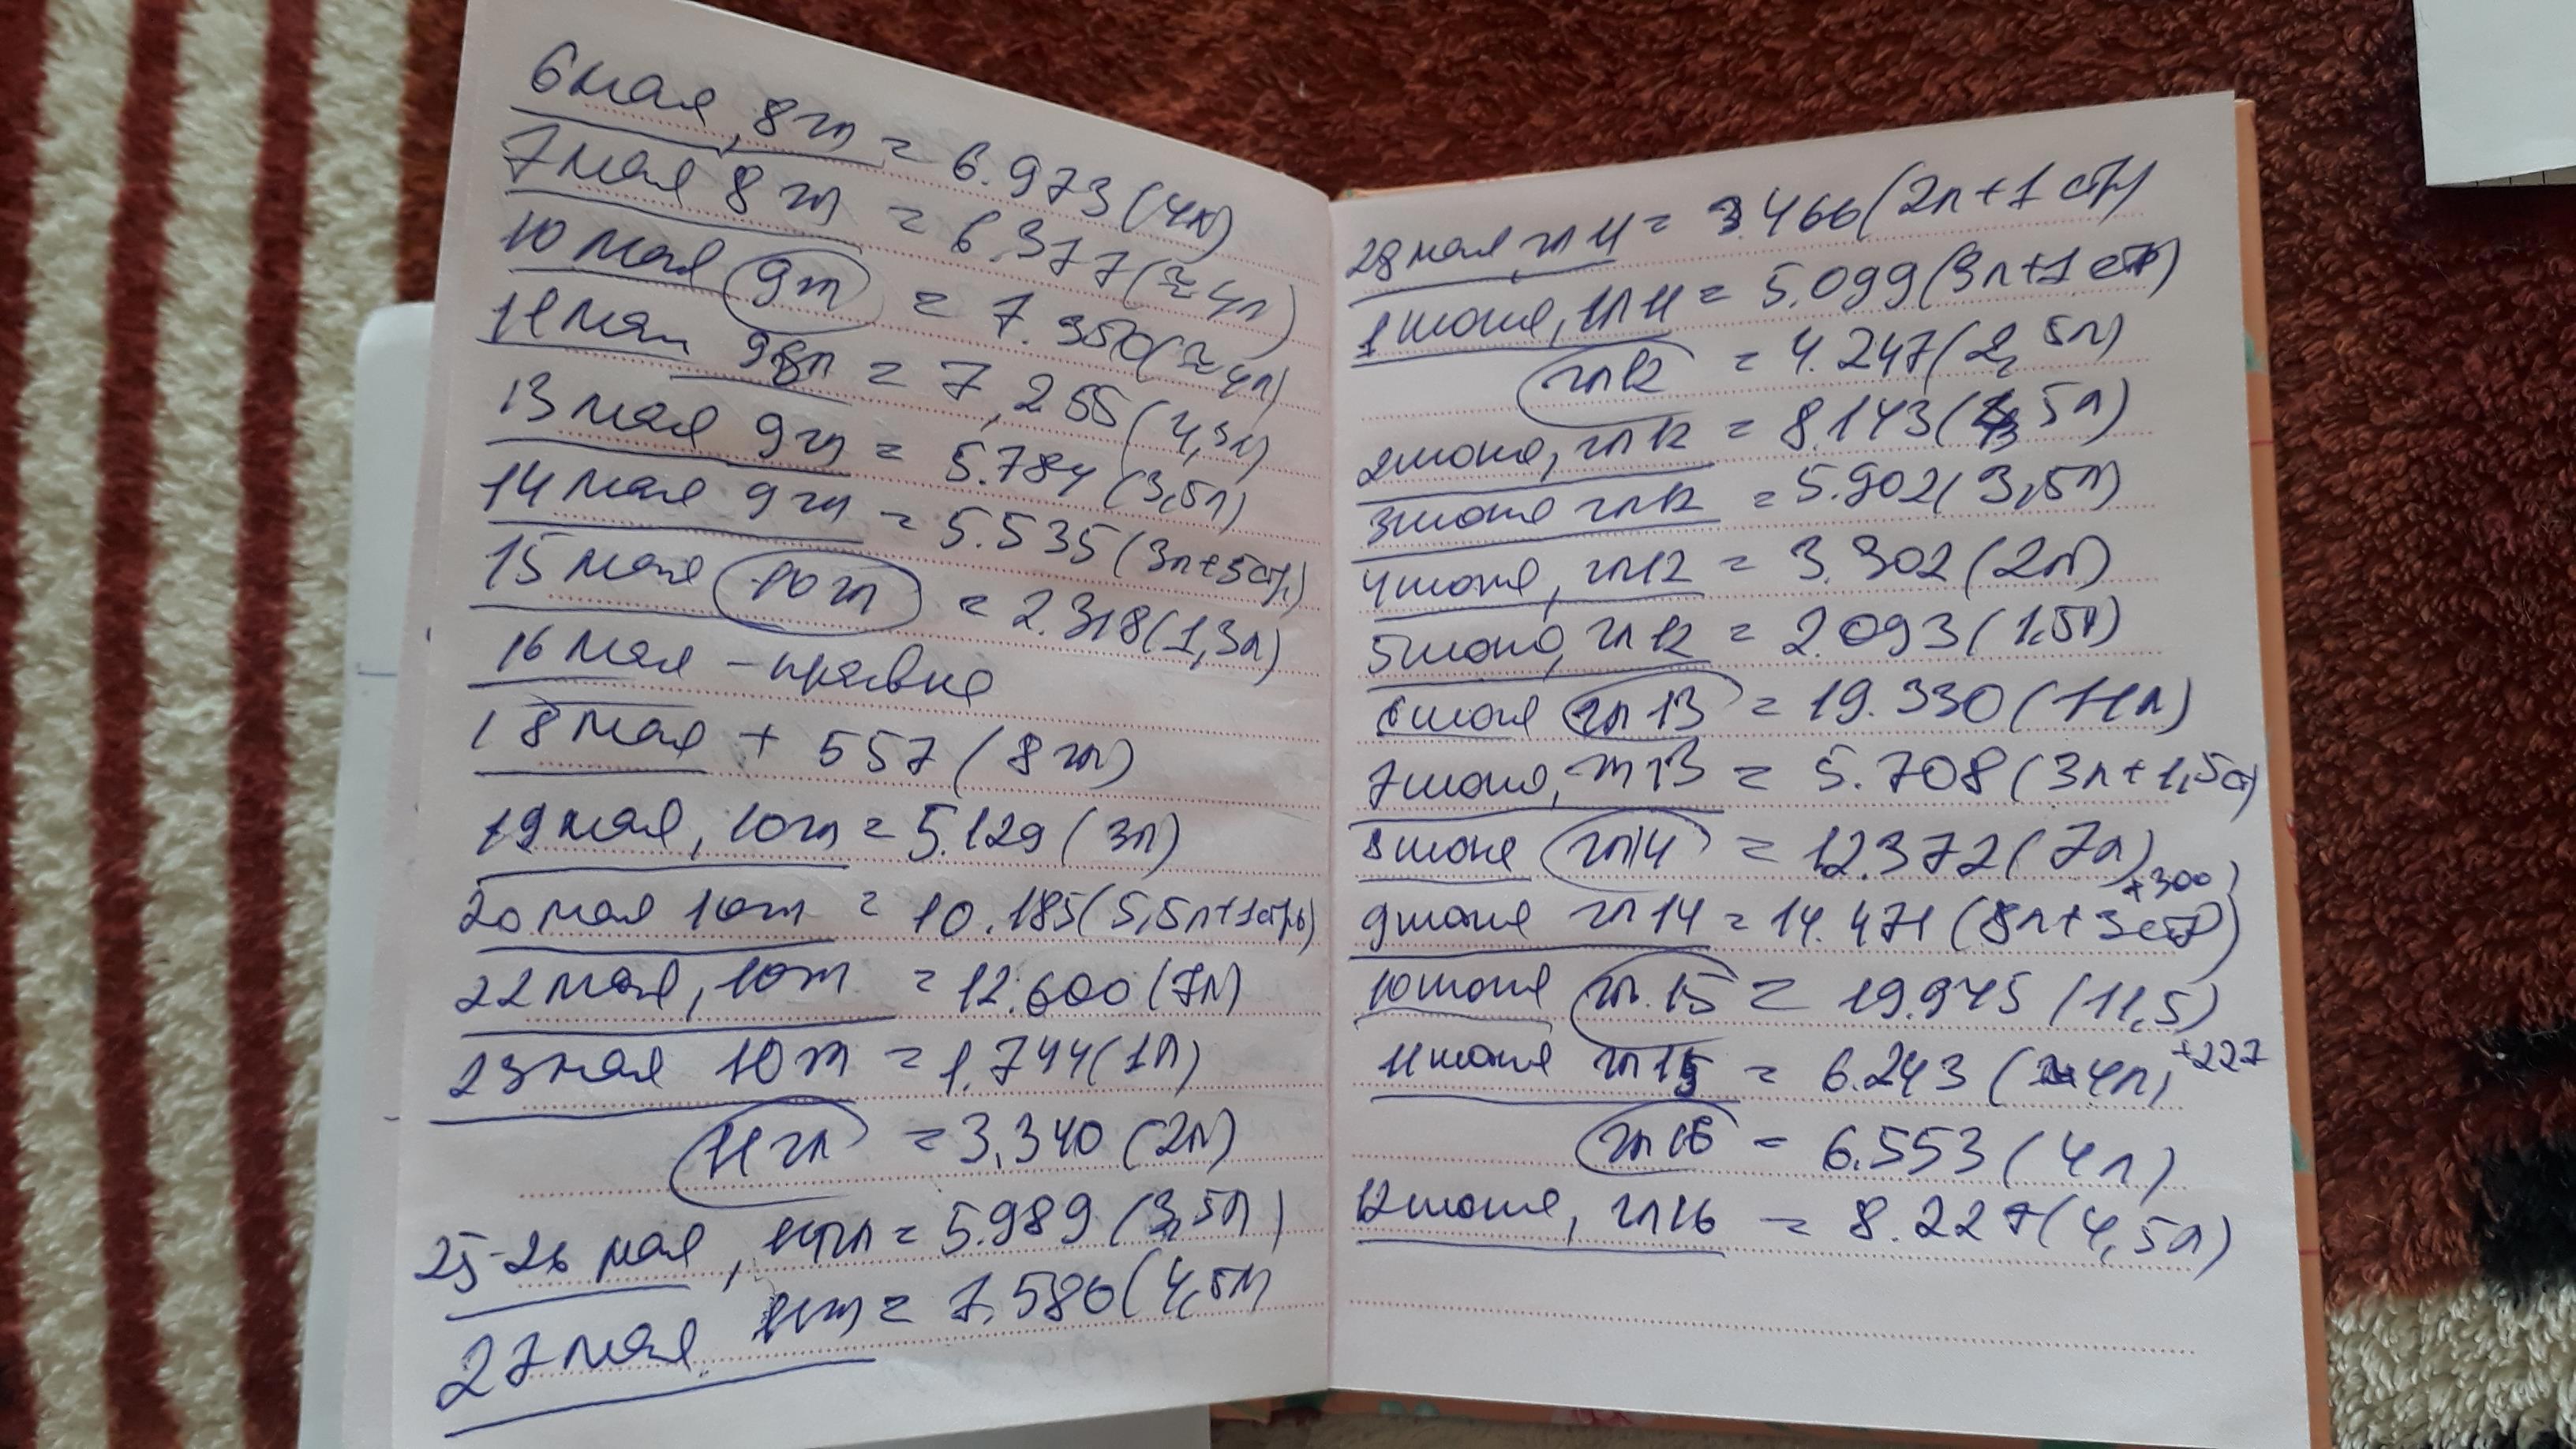 6 мая, 8 гл = 6.973 (4л)
7 мая 8 гл = 6.377 (≈ 4л)
10 мая 9 гл = 7.350 (≈ 4л)
11 мая 9 гл = 7,255 (4,3л)
13 мая 9 гл = 5.784 (3,5л)
14 мая 9 гл = 5.535 (3л+5стр)
15 мая 10 гл = 2.318 (1,3л)
16 мая - правка
18 мая + 557 (8 гл)
19 мая, 10 гл = 5.129 (3л)
20 мая 10 гл = 10.185 (5,5л+1стр)
22 мая, 10 гл = 12.600 (7л)
23 мая 10 гл = 1.744 (1л)
11 гл = 3.340 (2л)
25-26 мая, 11 гл = 5.989 (3,5л)
27 мая 11 гл = 7.586 (4,5л)
28 мая, гл 11 = 3.466 (2л+1 стр)
1 июня, гл 11 = 5.099 (3л+1 стр)
гл 12 = 4.247 (2,5л)
2 июня, гл 12 = 8.143 (4,5л)
3 июня гл 12 = 5.902 (3,5л)
4 июня, гл 12 = 3.302 (2л)
5 июня, гл 12 = 2.093 (1,5л)
6 июня гл 13 = 19.330 (11л)
7 июня, гл 13 = 5.708 (3л+1,5с)
8 июня гл 14 = 12.372 (7л)
9 июня гл 14 = 14.471 (8л+3стр +300)
10 июня гл. 15 = 19.945 (11,5)
11 июня гл 15 = 6.243 (4л) +227
гл 16 = 6.553 (4л)
12 июня, гл 16 = 8.227 (4,5л)